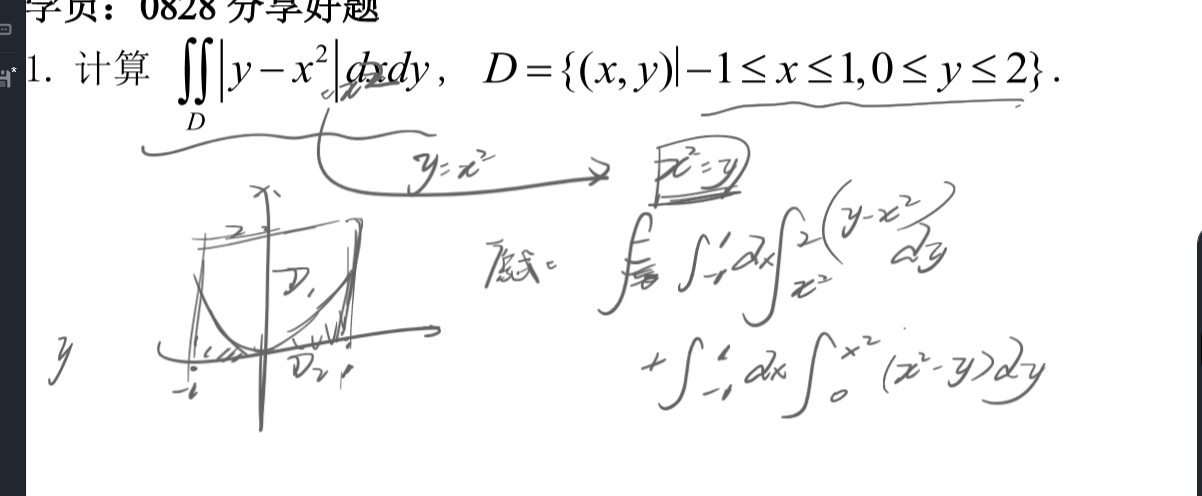 学员：0828 分享好题
1. 计算 ∬_D |y−x²|dxdy, D={(x,y)|−1≤x≤1,0≤y≤2}.
y=x²
x²=y
x
2
D₁
原式= ∫_{-1}^{1} dx ∫_{x²}^{2} (y-x²) dy
y
D₂
-1
1
+ ∫_{-1}^{1} dx ∫_{0}^{x²} (x²-y) dy